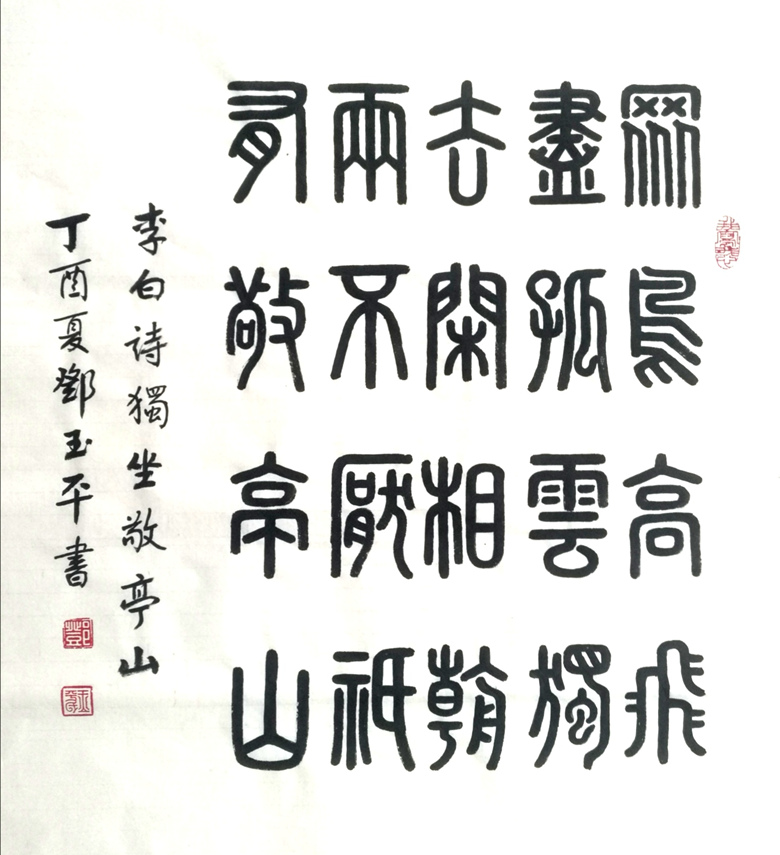 眾鳥高飛
盡孤雲獨
去閑相看
兩不厭祇
有敬亭山
李白詩獨坐敬亭山
丁酉夏鄧玉平書